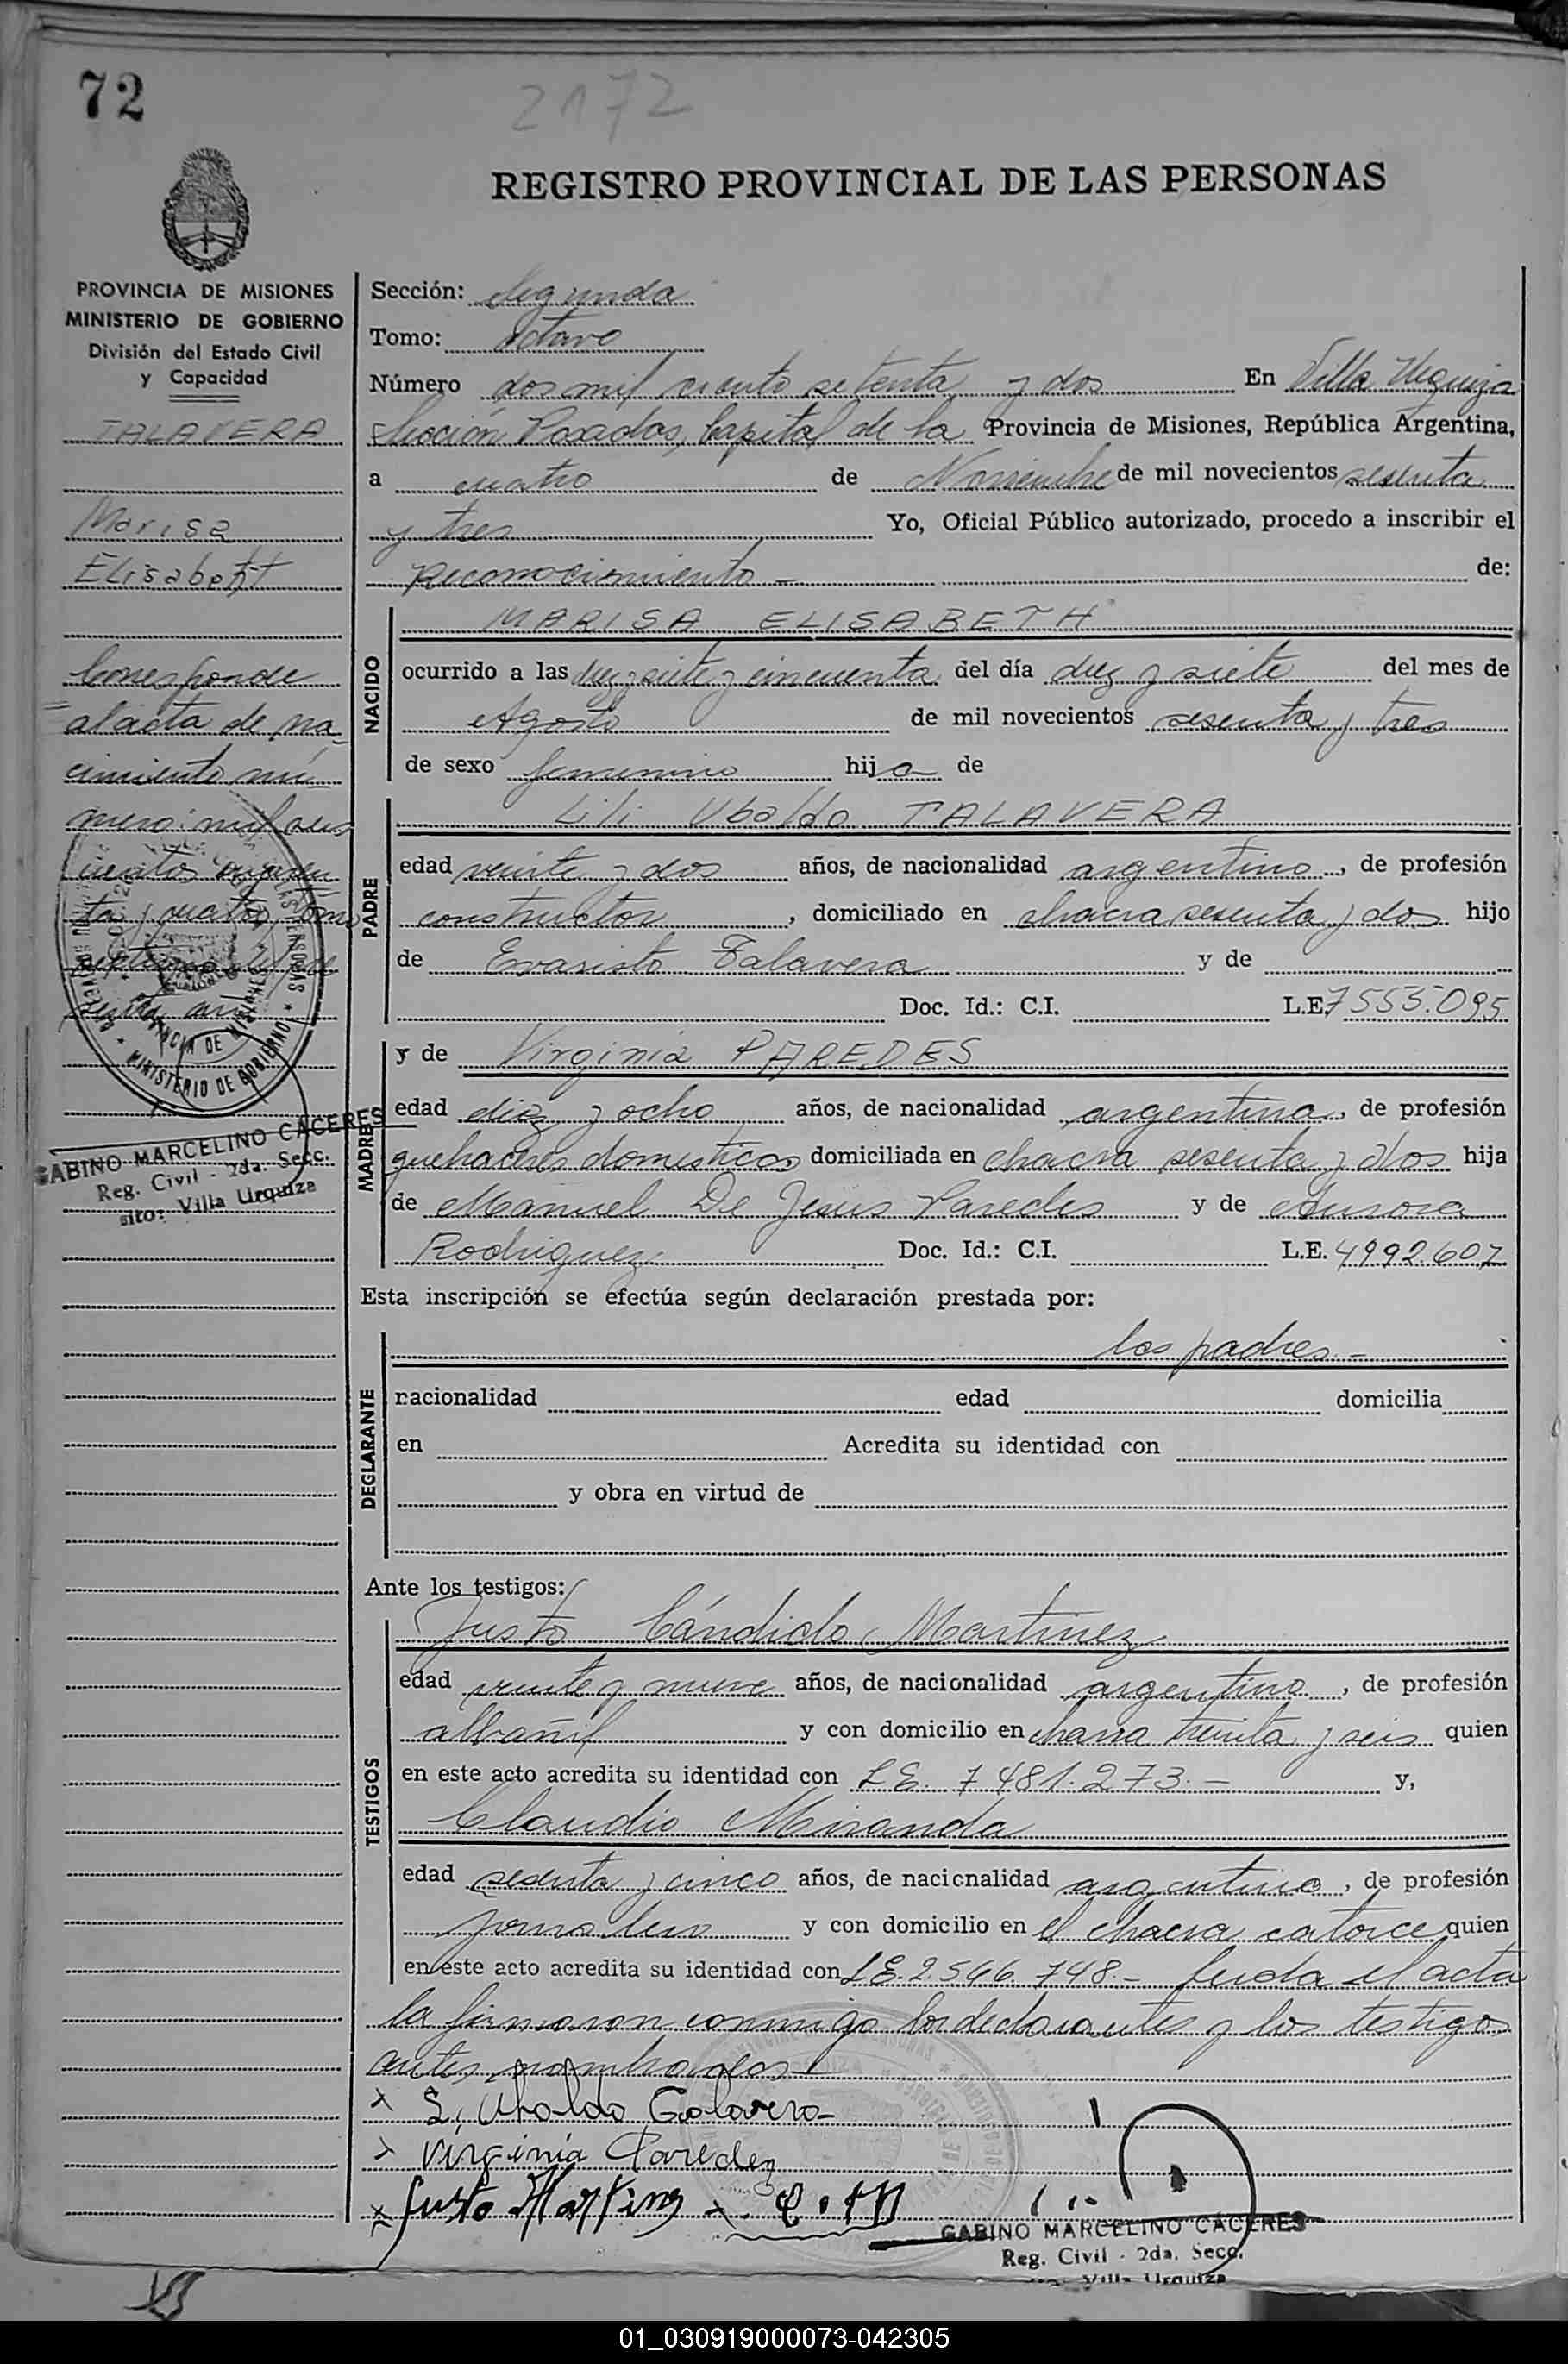 72
2172
REGISTRO PROVINCIAL DE LAS PERSONAS
PROVINCIA DE MISIONES
MINISTERIO DE GOBIERNO
División del Estado Civil
y Capacidad
TALAVERA
Marisa
Elisabett
Corresponde
al acta de na-
cimiento nú
mero: mil seis
cientos
ta y cuatro, tomo
septimo
GABINO MARCELINO CACERES
Reg. Civil - 2da. Secc.
sito: Villa Urquiza
Sección: Segunda
Tomo: Octavo
Número dos mil ciento setenta y dos En Villa Urquiza
Sección Posadas, Capital de la Provincia de Misiones, República Argentina,
a cuatro de Noviembre de mil novecientos sesenta
y tres Yo, Oficial Público autorizado, procedo a inscribir el
Reconocimiento - de:
NACIDO
MARISA ELISABETH
ocurrido a las diez y siete y cincuenta del día diez y siete del mes de
Agosto de mil novecientos sesenta y tres
de sexo femenino hija de
PADRE
Lili Ubaldo TALAVERA
edad veinte y dos años, de nacionalidad argentino, de profesión
constructor, domiciliado en chacra sesenta y dos hijo
de Evaristo Talavera y de
Doc. Id.: C.I. L.E. 7555.095
MADRE
y de Virginia PAREDES
edad diez y ocho años, de nacionalidad argentina, de profesión
quehaceres domesticos domiciliada en chacra sesenta y dos hija
de Manuel De Jesus Paredes y de Aurora
Rodriguez Doc. Id.: C.I. L.E. 4992.607
Esta inscripción se efectúa según declaración prestada por:
DECLARANTE
los padres.-
nacionalidad edad domicilia
en Acredita su identidad con
y obra en virtud de
Ante los testigos:
TESTIGOS
Justo Cándido Martinez
edad veinte y nueve años, de nacionalidad argentino, de profesión
albañil y con domicilio en chacra treinta y seis quien
en este acto acredita su identidad con L.E. 7481.273.- y,
Claudio Miranda
edad sesenta y cinco años, de nacionalidad argentino, de profesión
jornalero y con domicilio en el chacra catorce quien
en este acto acredita su identidad con L.E. 2.546.748.- Leida el acta
la firmaron conmigo los declarantes y los testigos
antes nombrados-
x L, Ubaldo Talavera-
x Virginia Paredez
x Justo Martinez x
GABINO MARCELINO CACERES
Reg. Civil - 2da. Secc.
Villa Urquiza
01_030919000073-042305